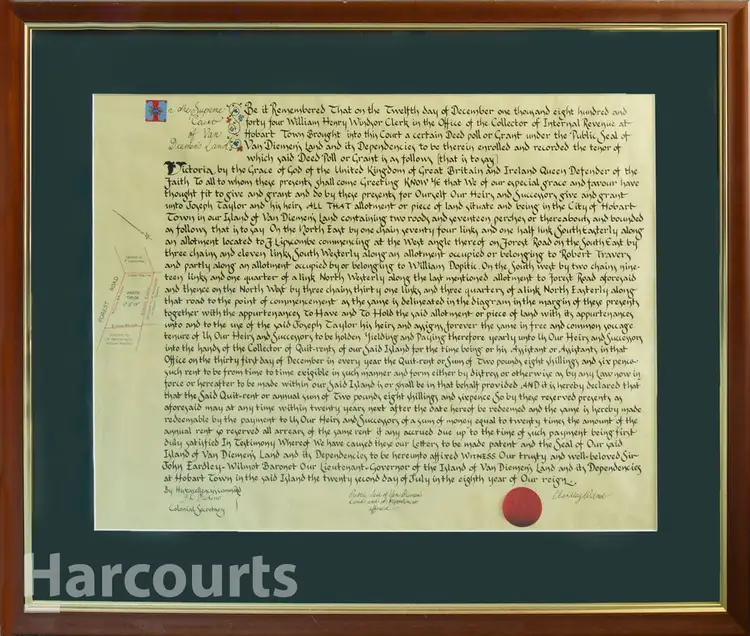 In the Supreme
Court
of Van
Diemen's Land
Be it Remembered That on the Twelfth day of December one thousand eight hundred and
forty four William Henry Windsor Clerk in the Office of the Collector of Internal Revenue at
Hobart Town Brought into this Court a certain Deed poll or Grant under the Public Seal of
Van Diemen's Land and its Dependencies to be therein enrolled and recorded the tenor of
which said Deed Poll or Grant is as follows (that is to say)
Victoria by the Grace of God of the United Kingdom of Great Britain and Ireland Queen Defender of the
Faith To all to whom these presents shall come Greeting KNOW YE that We of our especial grace and favour have
thought fit to give and grant and do by these presents for Ourself Our Heirs and Successors give and grant
unto Joseph Taylor and his heirs ALL THAT allotment or piece of land situate and being in the City of Hobart
Town in our Island of Van Diemen's Land containing two roods and seventeen perches or thereabouts and bounded
as follows that is to say On the North East by one chain seventy four links and one half link South Easterly along
an allotment located to J Lipscombe commencing at the West angle thereof on Forest Road on the South East by
three chains and eleven links South Westerly along an allotment occupied or belonging to Robert Travers
and partly along an allotment occupied by or belonging to William Dopitic On the South West by two chains nine-
teen links and one quarter of a link North Westerly along the last mentioned allotment to Forest Road aforesaid
and thence on the North West by three chains thirty one links and three quarters of a link North Easterly along
that road to the point of commencement as the same is delineated in the diagram in the margin of these presents
together with the appurtenances To Have and To Hold the said allotment or piece of land with its appurtenances
unto and to the use of the said Joseph Taylor his heirs and assigns forever the same in free and common soccage
tenure of Us Our Heirs and Successors to be holden Yielding and Paying therefore yearly unto Us Our Heirs and Successors
into the hands of the Collector of Quit-rents of our Said Island for the time being or his Assistant or Assistants in that
Office on the thirty first day of December in every year the Quit-rent or Sum of Two pounds eight shillings and six pence
such rent to be from time to time exigible in such manner and form either by distress or otherwise as by any Law now in
force or hereafter to be made within our Said Island is or shall be in that behalf provided AND it is hereby declared that
that the Said Quit-rent or annual sum of Two pounds eight shillings and sixpence So by these reserved presents as
aforesaid may at any time within twenty years next after the date hereof be redeemed and the same is hereby made
redeemable by the payment to Us Our Heirs and Successors of a sum of money equal to twenty times the amount of the
annual rent so reserved all arrears of the same rent if any accrued due up to the time of such payment being first
duly satisfied In Testimony Whereof We have caused these our Letters to be made patent and the Seal of Our said
Island of Van Diemen's Land and its Dependencies to be hereunto affixed WITNESS Our trusty and well-beloved Sir
John Eardley-Wilmot Baronet Our Lieutenant-Governor of the Island of Van Diemen's Land and its Dependencies
at Hobart Town in the said Island the twenty second day of July in the eighth year of Our reign
By His Excellency's command
Colonial Secretary
Public Seal of Van Diemen's
Land and its Dependencies
affixed
FOREST ROAD
JOSEPH
TAYLOR
Harcourts